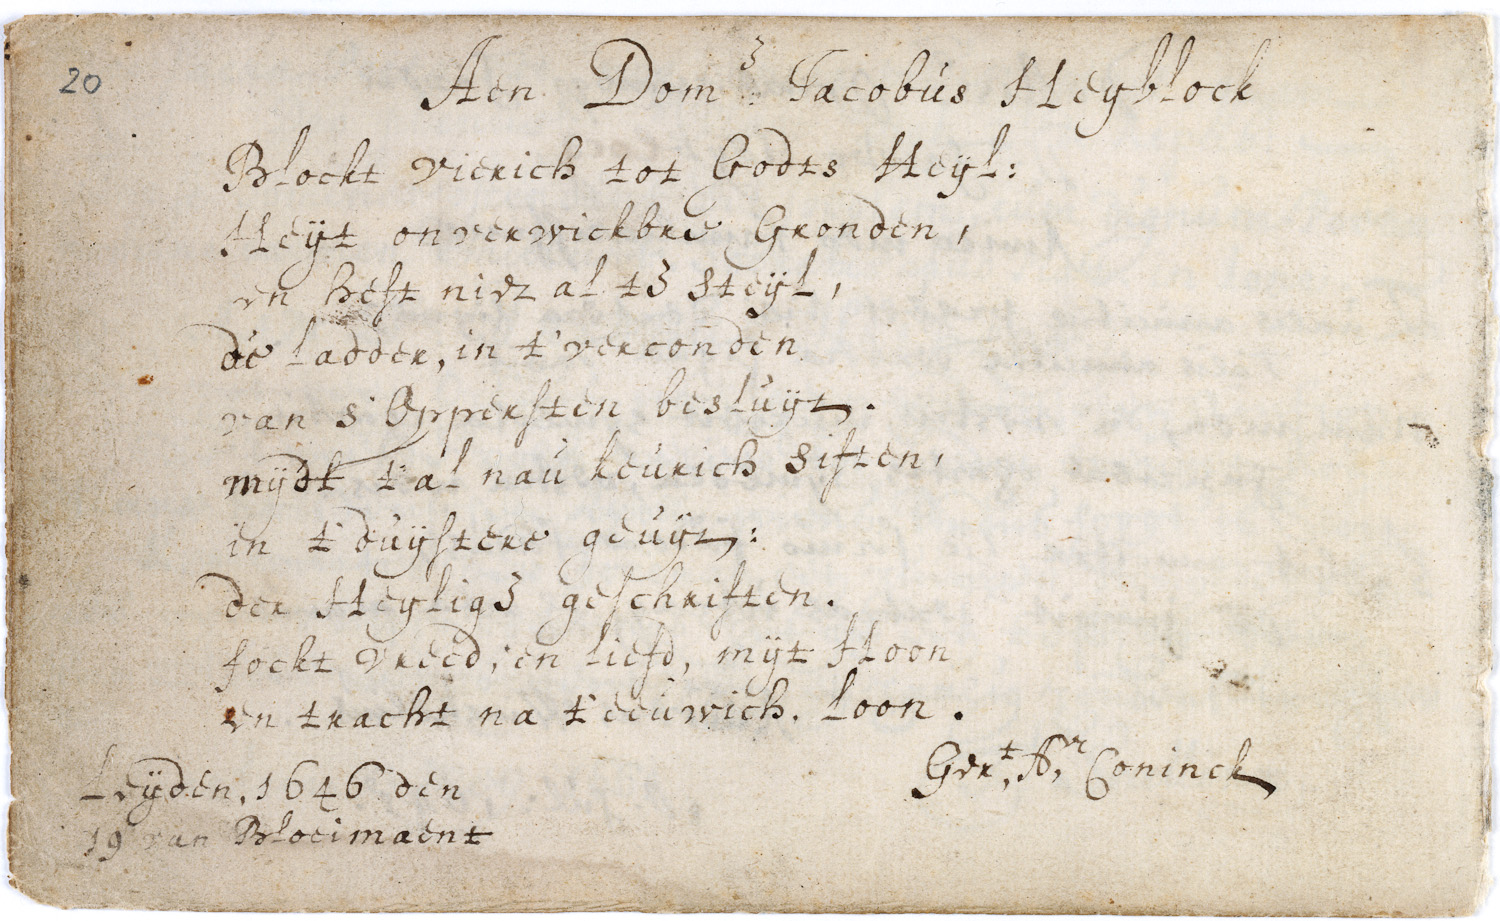 20
Aen Dom.e Jacobus Heyblock
Blockt vierich tot Godts Heÿl:
Heÿt onverwickbre Gronden,
en heft niet al te steÿl,
de ladder, in t'verconden
van s'Oppersten besluÿt.
mÿdt t'al nau keurich siften,
in t'duÿstere geuÿt:
der Heylige geschriften.
sockt vreed, en liefd, mÿt Hoon
en tracht na t'eeuwich. loon.
Gert. Ar. Coninck
Leÿden, 1646 den
19 van Bloeimaent